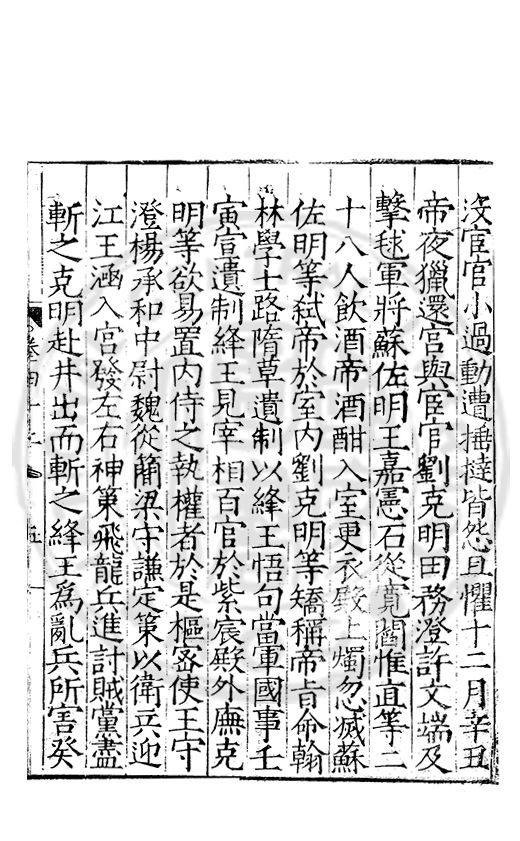 沒宦官小過動遭捶撻皆怨且懼十二月辛丑
帝夜獵還宮與宦官劉克明田務澄許文端及
擊毬軍將蘇佐明王嘉憲石從寬閻惟直等二
十八人飲酒帝酒酣入室更衣殿上燭忽滅蘇
佐明等弑帝於室內劉克明等矯稱帝旨命翰
林學士路隋草遺制以絳王悟句當軍國事壬
寅宣遺制絳王見宰相百官於紫宸殿外廡克
明等欲易置內侍之執權者於是樞密使王守
澄楊承和中尉魏從簡梁守謙定策以衛兵迎
江王涵入宮發左右神策飛龍兵進討賊黨盡
斬之克明赴井出而斬之絳王為亂兵所害癸